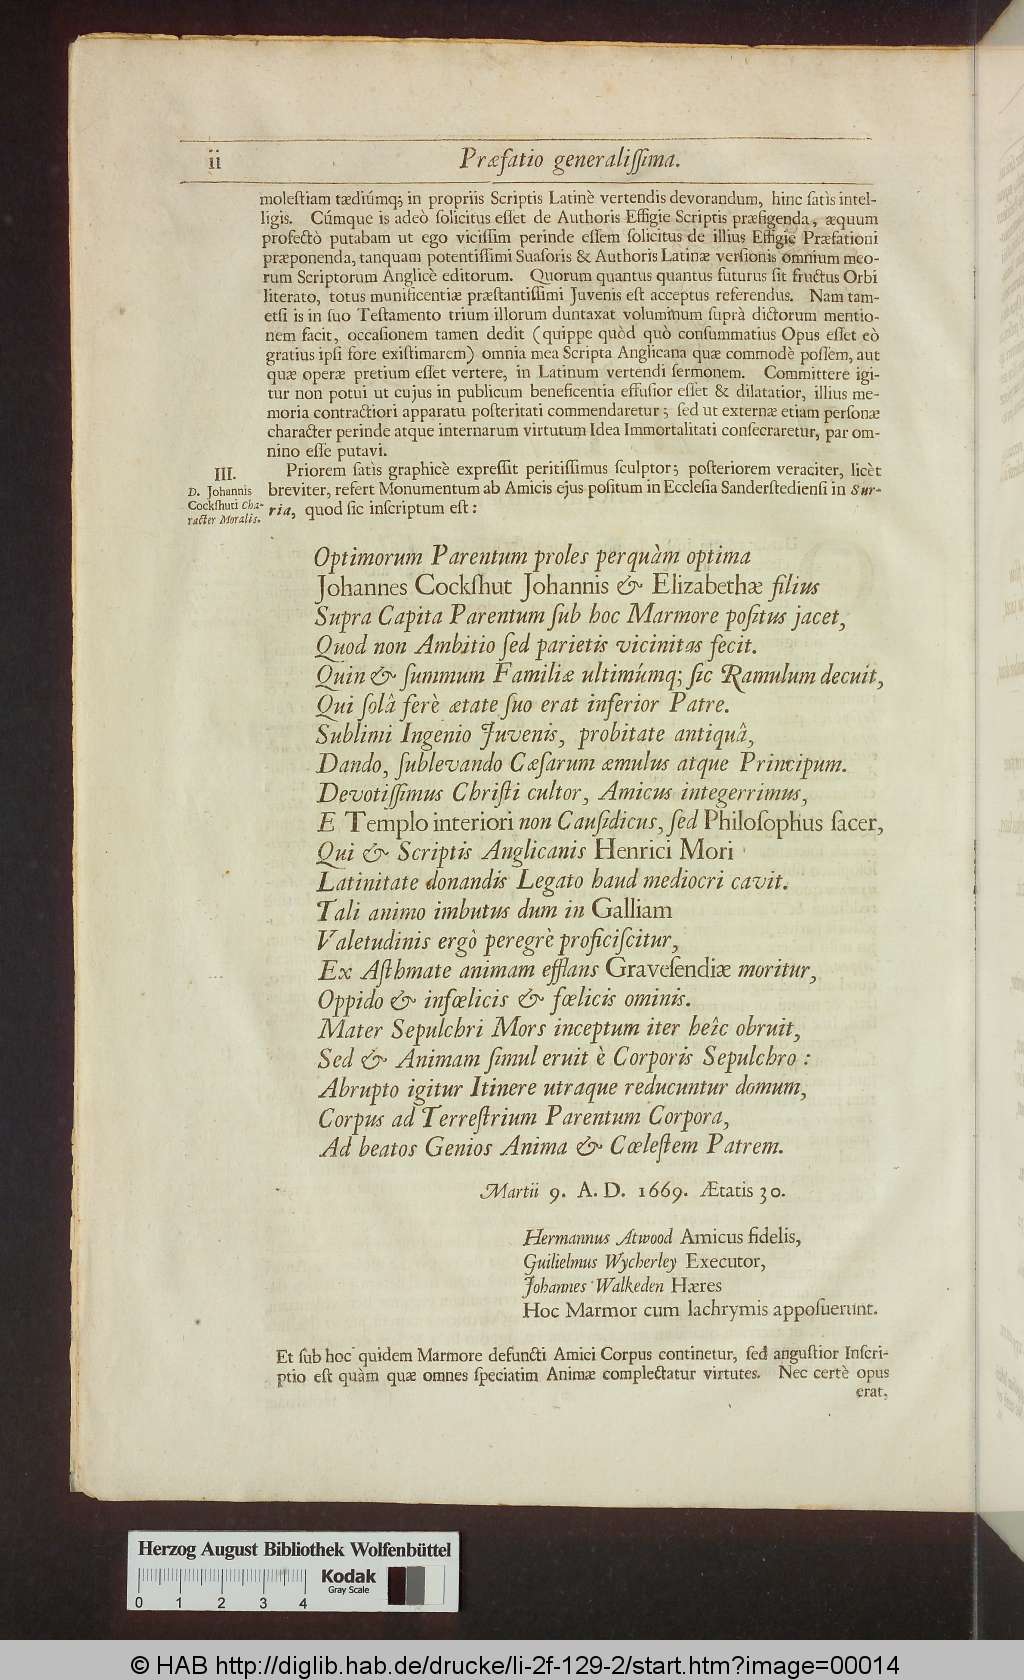 ii
Præfatio generaliſſima.
moleſtiam tædiúmq; in propriis Scriptis Latinè vertendis devorandum, hinc ſatìs intel-
ligis. Cúmque is adeò ſolicitus eſſet de Authoris Effigie Scriptis præfigenda, æquum
profectò putabam ut ego viciſſim perinde eſſem ſolicitus de illius Effigie Præfationi
præponenda, tanquam potentiſſimi Suaſoris & Authoris Latinæ verſionis omnium meo-
rum Scriptorum Anglicè editorum. Quorum quantus quantus futurus ſit fructus Orbi
literato, totus munificentiæ præſtantiſſimi Juvenis eſt acceptus referendus. Nam tam-
etſi is in ſuo Teſtamento trium illorum duntaxat voluminum ſuprà dictorum mentio-
nem facit, occaſionem tamen dedit (quippe quòd quò conſummatius Opus eſſet eò
gratius ipſi fore exiſtimarem) omnia mea Scripta Anglicana quæ commodè poſſem, aut
quæ operæ pretium eſſet vertere, in Latinum vertendi ſermonem. Committere igi-
tur non potui ut cujus in publicum beneficentia effuſior eſſet & dilatatior, illius me-
moria contractiori apparatu poſteritati commendaretur; ſed ut externæ etiam perſonæ
character perinde atque internarum virtutum Idea Immortalitati conſecraretur, par om-
nino eſſe putavi.
III.
D. Johannis
Cockſhuti Cha-
racter Moralis.
Priorem ſatìs graphicè expreſſit peritiſſimus ſculptor; poſteriorem veraciter, licèt
breviter, refert Monumentum ab Amicis ejus poſitum in Eccleſia Sanderſtedienſi in Sur-
ria, quod ſic inſcriptum eſt:
Optimorum Parentum proles perquàm optima
Johannes Cockſhut Johannis & Elizabethæ filius
Supra Capita Parentum ſub hoc Marmore poſitus jacet,
Quod non Ambitio ſed parietis vicinitas fecit.
Quin & ſummum Familiæ ultimúmq; ſic Ramulum decuit,
Qui ſolâ ferè ætate ſuo erat inferior Patre.
Sublimi Ingenio Juvenis, probitate antiquâ,
Dando, ſublevando Cæſarum æmulus atque Principum.
Devotiſſimus Chriſti cultor, Amicus integerrimus,
E Templo interiori non Cauſidicus, ſed Philoſophus ſacer,
Qui & Scriptis Anglicanis Henrici Mori
Latinitate donandis Legato haud mediocri cavit.
Tali animo imbutus dum in Galliam
Valetudinis ergò peregrè proficiſcitur,
Ex Aſthmate animam efflans Graveſendiæ moritur,
Oppido & infœlicis & fœlicis ominis.
Mater Sepulchri Mors inceptum iter heîc obruit,
Sed & Animam ſimul eruit è Corporis Sepulchro:
Abrupto igitur Itinere utraque reducuntur domum,
Corpus ad Terreſtrium Parentum Corpora,
Ad beatos Genios Anima & Cœleſtem Patrem.
Martii 9. A. D. 1669. Ætatis 30.
Hermannus Atwood Amicus fidelis,
Guilielmus Wycherley Executor,
Johannes Walkeden Hæres
Hoc Marmor cum lachrymis appoſuerunt.
Et ſub hoc quidem Marmore defuncti Amici Corpus continetur, ſed anguſtior Inſcri-
ptio eſt quàm quæ omnes ſpeciatim Animæ complectatur virtutes. Nec certè opus
erat,
Herzog August Bibliothek Wolfenbüttel
Kodak
Gray Scale
0 1 2 3 4
© HAB http://diglib.hab.de/drucke/li-2f-129-2/start.htm?image=00014